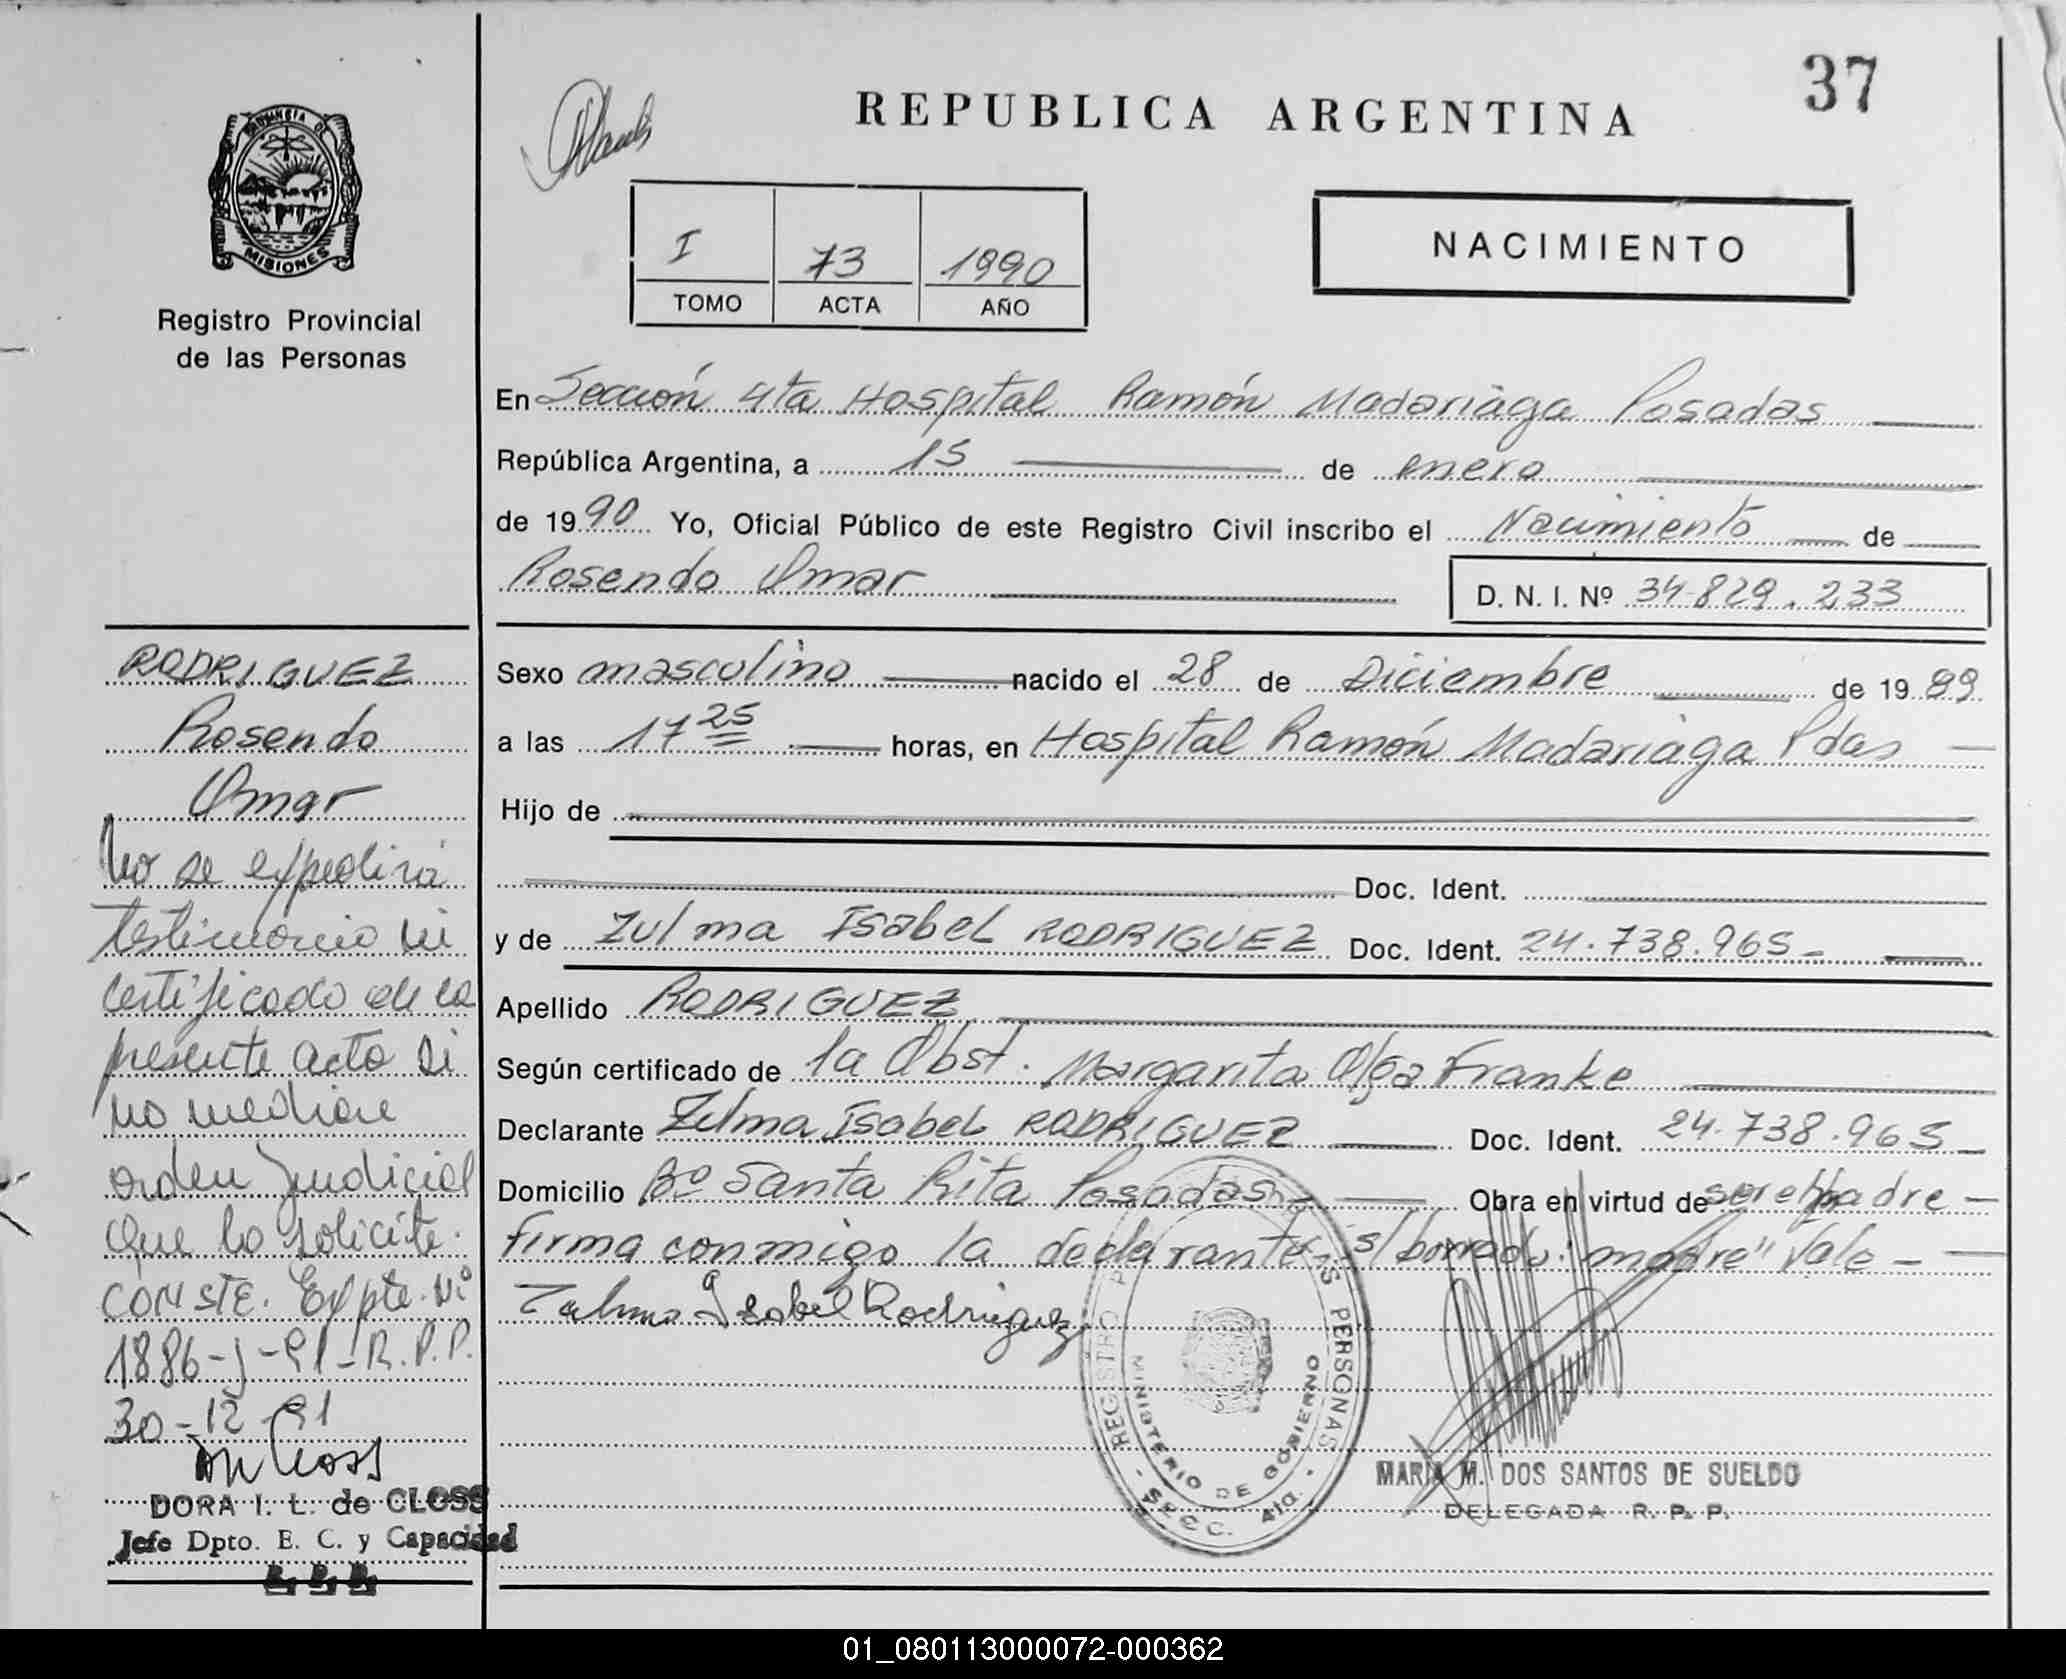 37
REPUBLICA ARGENTINA
PROVINCIA DE
MISIONES
Registro Provincial
de las Personas
I 73 1990
TOMO ACTA AÑO
NACIMIENTO
En Sección 4ta Hospital Ramón Madariaga Posadas
República Argentina, a 15 de enero
de 1990 Yo, Oficial Público de este Registro Civil inscribo el Nacimiento de
Rosendo Omar
D. N. I. Nº 34.829.233
Sexo masculino nacido el 28 de Diciembre de 1989
a las 17 25 horas, en Hospital Ramón Madariaga Pdas
Hijo de
Doc. Ident.
y de Zulma Isabel RODRIGUEZ Doc. Ident. 24.738.965
Apellido RODRIGUEZ
Según certificado de la Obst. Margarita Olga Franke
Declarante Zulma Isabel RODRIGUEZ Doc. Ident. 24.738.965
Domicilio Bº Santa Rita Posadas Obra en virtud de ser el padre
firma conmigo la declarante s/ borrado: "madre" Vale
Zulma Isabel Rodriguez
REGISTRO PERSONAS
MINISTERIO DE GOBIERNO
SECC. 4ta.
MARIA M. DOS SANTOS DE SUELDO
DELEGADA R. P. P.
RODRIGUEZ
Rosendo
Omar
No se expedirá
testimonio ni
certificado de la
presente acta si
no mediare
orden Judicial
que lo solicite.
CONSTE. Expte. Nº
1886-J-91-R.P.P.
30-12-91
DORA I. L. de CLOSS
Jefe Dpto. E. C. y Capacidad
R. P. P.
01_080113000072-000362